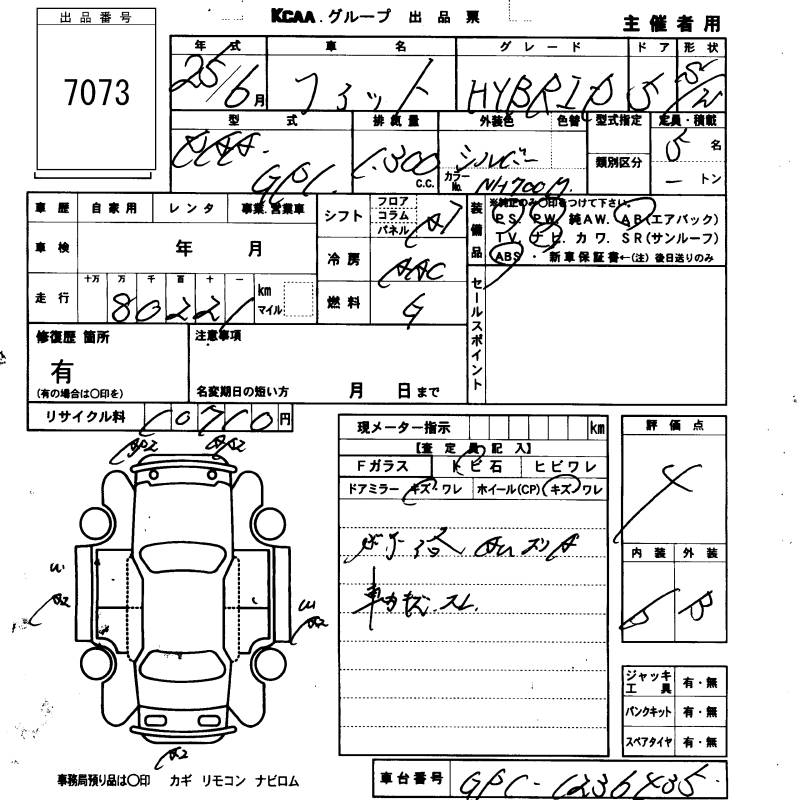 KCAA.グループ 出品票
主催者用
出品番号
7073
年式 車名 グレード ドア 形状
25/6月 フィット HYBRID 5 5/W
型式 排気量 外装色 色替 型式指定 定員・積載
DAA- GP1 1,300 C.C. シルバー カラーNo. NH700M 類別区分 5名
ートン
車歴 自家用 レンタ 事業.営業車
シフト フロア コラム パネル AT
装備品 ※純正のみ〇印をつけて下さい。
PS. PW. 純AW. AB(エアバック)
TV. ナビ. カワ. SR(サンルーフ)
ABS ・ 新車保証書←(注) 後日送りのみ
車検 年 月
冷房 AAC
走行 十万 万 千 百 十 一
80221 km マイル
燃料 G
セールスポイント
修復歴 箇所
有
(有の場合は〇印を)
注意事項
名変期日の短い方 月 日まで
リサイクル料 10710円
現メーター指示 km
【査定員記入】
Fガラス トビ石 ヒビワレ
ドアミラー キズ・ワレ ホイール(CP) キズ・ワレ
評価点
4
内装 外装
B B
A2 A2
A2 A2
A2
ジャッキ工具 有・無
パンクキット 有・無
スペアタイヤ 有・無
事務局預り品は〇印 カギ リモコン ナビロム
車台番号 GP1-1236435